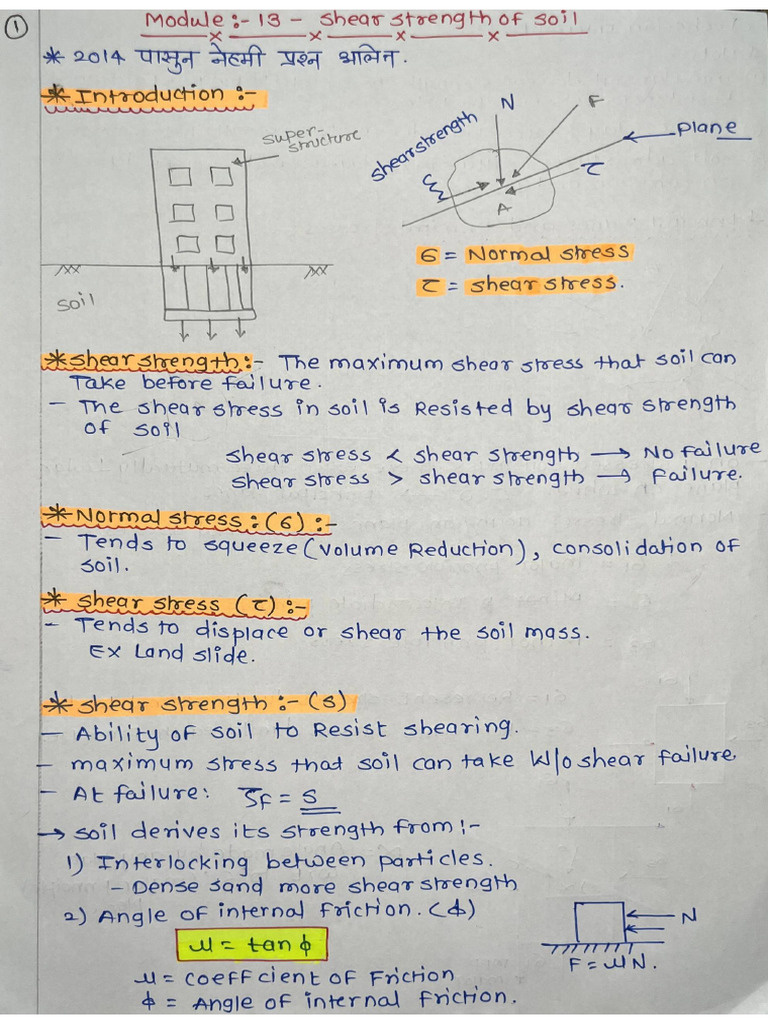 1
Module :- 13 - Shear strength of soil
* 2014 पासुन नेहमी प्रश्न आलेत.
* Introduction :-
super-
structure
soil
N
F
shear strength
Plane
τ
A
6 = Normal stress
τ = shear stress.
* shear strength :- The maximum shear stress that soil can
Take before failure.
- The shear stress in soil is Resisted by shear strength
of soil
shear stress < shear strength → No failure
shear stress > shear strength → Failure.
* Normal stress : (6) :-
- Tends to squeeze (Volume Reduction), consolidation of
soil.
* Shear stress (τ) :-
- Tends to displace or shear the soil mass.
Ex Land slide.
* shear strength :- (s)
- Ability of soil to Resist shearing.
- maximum stress that soil can take W/o shear failure.
- At failure: τF = s
→ soil derives its strength from :-
1) Interlocking between particles.
- Dense sand more shear strength
2) Angle of internal friction. (ϕ)
μ = tan ϕ
N
F = μN.
μ = coeffcient of Friction
ϕ = Angle of internal friction.